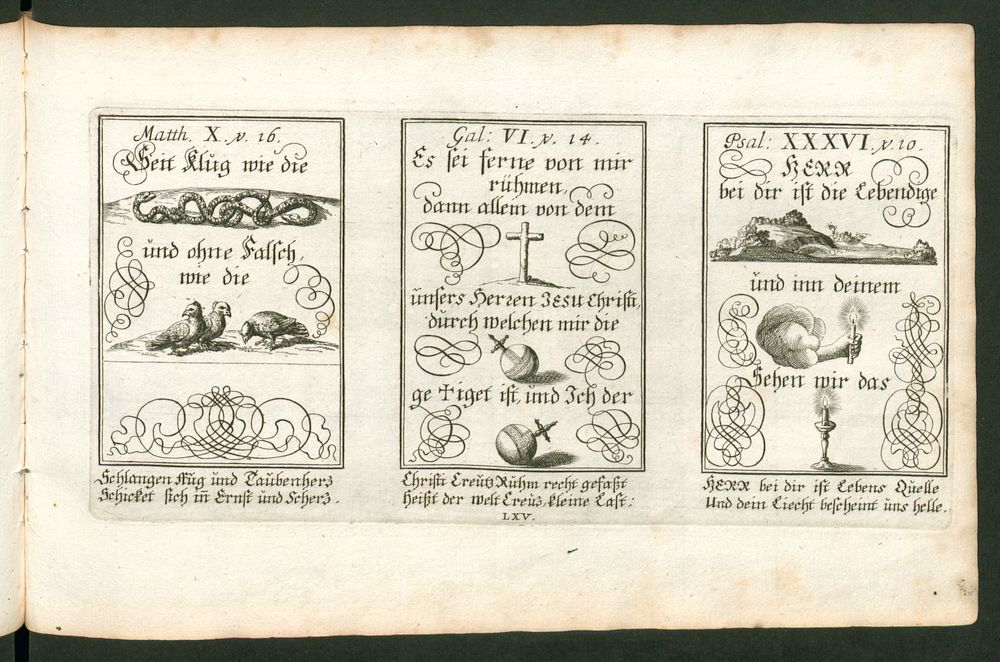 Matth. X. v. 16.
Seit Klug wie die
und ohne Falsch,
wie die
Schlangen klug und Taubenherz
Schicket sich in Ernst und Scherz.
Gal: VI. v. 14.
Es sei ferne von mir
rühmen,
dann allein von dem
unsers Herren JESU Christi,
durch welchen mir die
ge✝iget ist, und Ich der
Christi Creütz Rühm recht gefaßt
Heißt der welt Creüz, kleine Last:
LXV.
Psal: XXXVI. v. 10.
HERR
bei dir ist die Lebendige
und inn deinem
Sehen wir das
HERR bei dir ist Lebens Quelle
Und dein Liecht bescheint uns helle.